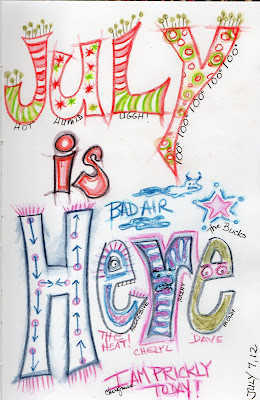 JULY
HOT HUMID UGGH!
100° 100° 100° 100° 100° 100°
is
BAD AIR
the Bucks
Here
THE HEAT!
CHERYL
DAVE
I AM PRICKLY
TODAY!
JULY 7, 12